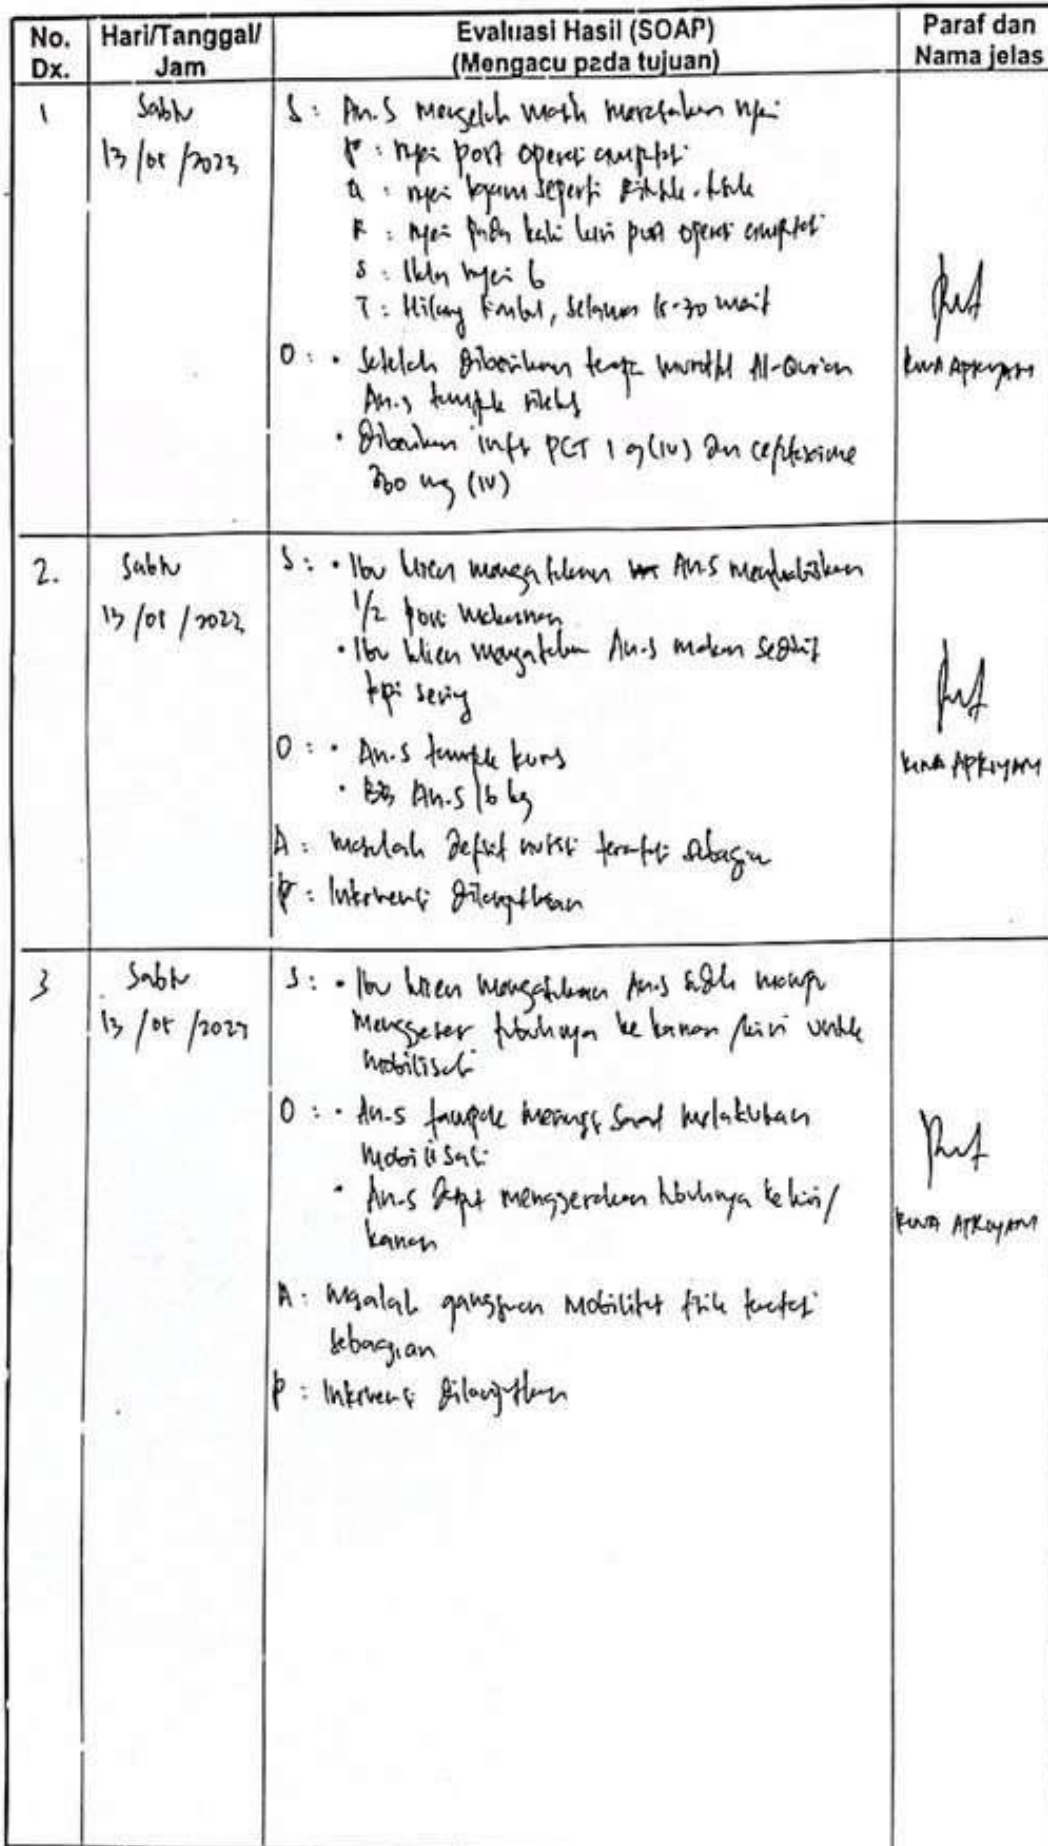 No. Dx.
Hari/Tanggal/ Jam
Evaluasi Hasil (SOAP)
(Mengacu pada tujuan)
Paraf dan Nama jelas
1
Sabtu
13/05/2023
S : An.S mengeluh masih merasakan nyeri
P : nyeri post operasi amputasi
Q : nyeri seperti
R : nyeri pada kaki kiri post operasi amputasi
S : skala nyeri 6
T : Hilang timbul, selama 15-30 menit
O : • Setelah diberikan terapi murottal Al-Qur'an
An.s tampak rileks
• Diberikan infs PCT 1 g (IV) dan
mg (IV)
2.
Sabtu
13/05/2023
S : • Ibu klien mengatakan An.S menghabiskan
1/2 porsi makanan
• Ibu klien mengatakan An.S makan sedikit
tapi sering
O : • An.S tampak kurus
• BB An.S 16 kg
A : masalah defisit nutrisi teratasi sebagian
P : Intervensi dilanjutkan
3
Sabtu
13/05/2023
S : • Ibu klien mengatakan An.S sudah mampu
menggeser tubuhnya ke kanan/kiri untuk
mobilisasi
O : • An.S tampak saat melakukan
mobilisasi
• An.S dapat menggerakan tubuhnya ke kiri/
kanan
A : Masalah gangguan mobilitas fisik teratasi
sebagian
P : Intervensi dilanjutkan